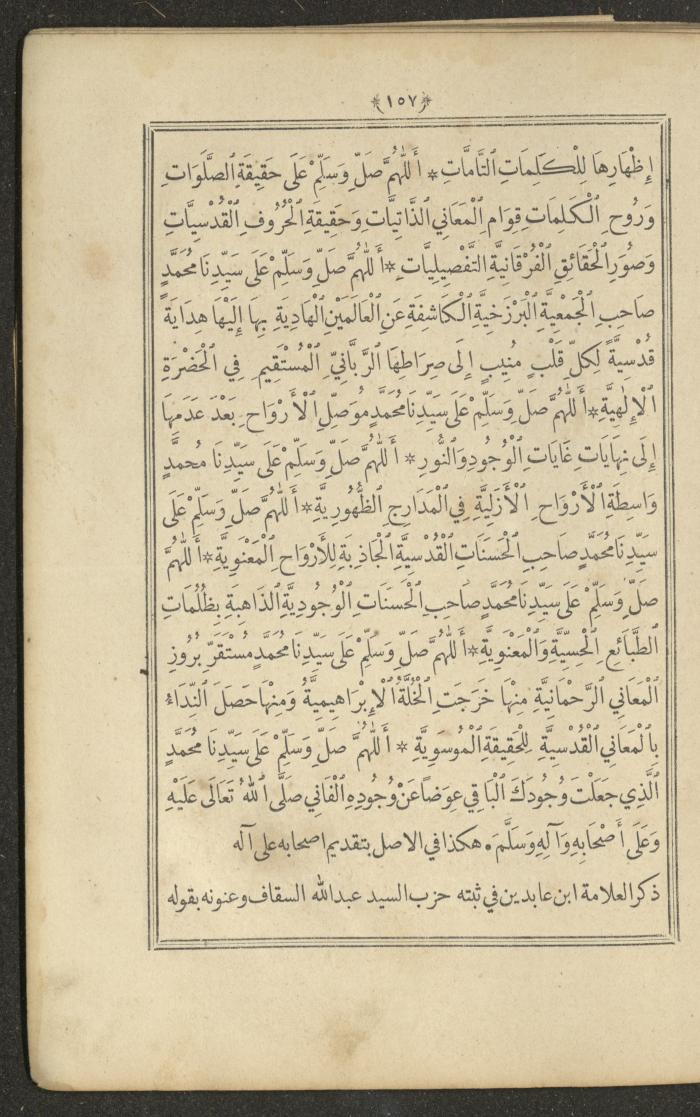 ﴿١٥٧﴾
إِظْهَارِهَا لِلْكَلِمَاتِ ٱلتَّامَّاتِ * أَللّٰهُمَّ صَلِّ وَسَلِّمْ عَلَى حَقِيقَةِ ٱلصَّلَوَاتِ
وَرُوحِ ٱلْكَلِمَاتِ قِوَامِ ٱلْمَعَانِي ٱلذَّاتِيَّاتِ وَحَقِيقَةِ ٱلْحُرُوفِ ٱلْقُدْسِيَّاتِ
وَصُوَرِ ٱلْحَقَائِقِ ٱلْفُرْقَانِيَّةِ ٱلتَّفْصِيلِيَّاتِ * أَللّٰهُمَّ صَلِّ وَسَلِّمْ عَلَى سَيِّدِنَا مُحَمَّدٍ
صَاحِبِ ٱلْجَمْعِيَّةِ ٱلْبَرْزَخِيَّةِ ٱلْكَاشِفَةِ عَنِ ٱلْعَالَمَيْنِ ٱلْهَادِيَةِ بِهَا إِلَيْهَا هِدَايَةً
قُدْسِيَّةً لِكُلِّ قَلْبٍ مُنِيبٍ إِلَى صِرَاطِهَا ٱلرَّبَّانِيِّ ٱلْمُسْتَقِيمِ فِي ٱلْحَضْرَةِ
ٱلْإِلٰهِيَّةِ * أَللّٰهُمَّ صَلِّ وَسَلِّمْ عَلَى سَيِّدِنَا مُحَمَّدٍ مُوَصِّلِ ٱلْأَرْوَاحِ بَعْدَ عَدَمِهَا
إِلَى نِهَايَاتِ غَايَاتِ ٱلْوُجُودِ وَٱلنُّورِ * أَللّٰهُمَّ صَلِّ وَسَلِّمْ عَلَى سَيِّدِنَا مُحَمَّدٍ
وَاسِطَةِ ٱلْأَرْوَاحِ ٱلْأَزَلِيَّةِ فِي ٱلْمَدَارِجِ ٱلظُّهُورِيَّةِ * أَللّٰهُمَّ صَلِّ وَسَلِّمْ عَلَى
سَيِّدِنَا مُحَمَّدٍ صَاحِبِ ٱلْحَسَنَاتِ ٱلْقُدْسِيَّةِ ٱلْجَاذِبَةِ لِلْأَرْوَاحِ ٱلْمَعْنَوِيَّةِ * أَللّٰهُمَّ
صَلِّ وَسَلِّمْ عَلَى سَيِّدِنَا مُحَمَّدٍ صَاحِبِ ٱلْحَسَنَاتِ ٱلْوُجُودِيَّةِ ٱلذَاهِبَةِ بِظُلُمَاتِ
ٱلطَّبَائِعِ ٱلْحِسِّيَّةِ وَٱلْمَعْنَوِيَّةِ * أَللّٰهُمَّ صَلِّ وَسَلِّمْ عَلَى سَيِّدِنَا مُحَمَّدٍ مُسْتَقَرِّ بُرُوزِ
ٱلْمَعَانِي ٱلرَّحْمَانِيَّةِ مِنْهَا خَرَجَتِ ٱلْخُلَّةُ ٱلْإِبْرَاهِيمِيَّةُ وَمِنْهَا حَصَلَ ٱلنِّدَاءُ
بِٱلْمَعَانِي ٱلْقُدْسِيَّةِ لِلْحَقِيقَةِ ٱلْمُوسَوِيَّةِ * أَللّٰهُمَّ صَلِّ وَسَلِّمْ عَلَى سَيِّدِنَا مُحَمَّدٍ
ٱلَّذِي جَعَلْتَ وُجُودَكَ ٱلْبَاقِي عِوَضًا عَنْ وُجُودِهِ ٱلْفَانِي صَلَّى ٱللّٰهُ تَعَالَى عَلَيْهِ
وَعَلَى أَصْحَابِهِ وَآلِهِ وَسَلَّمَ ۰ هكذا في الاصل بتقديم اصحابه على آله
ذكر العلامة ابن عابدين في ثبته حزب السيد عبدالله السقاف وعنونه بقوله